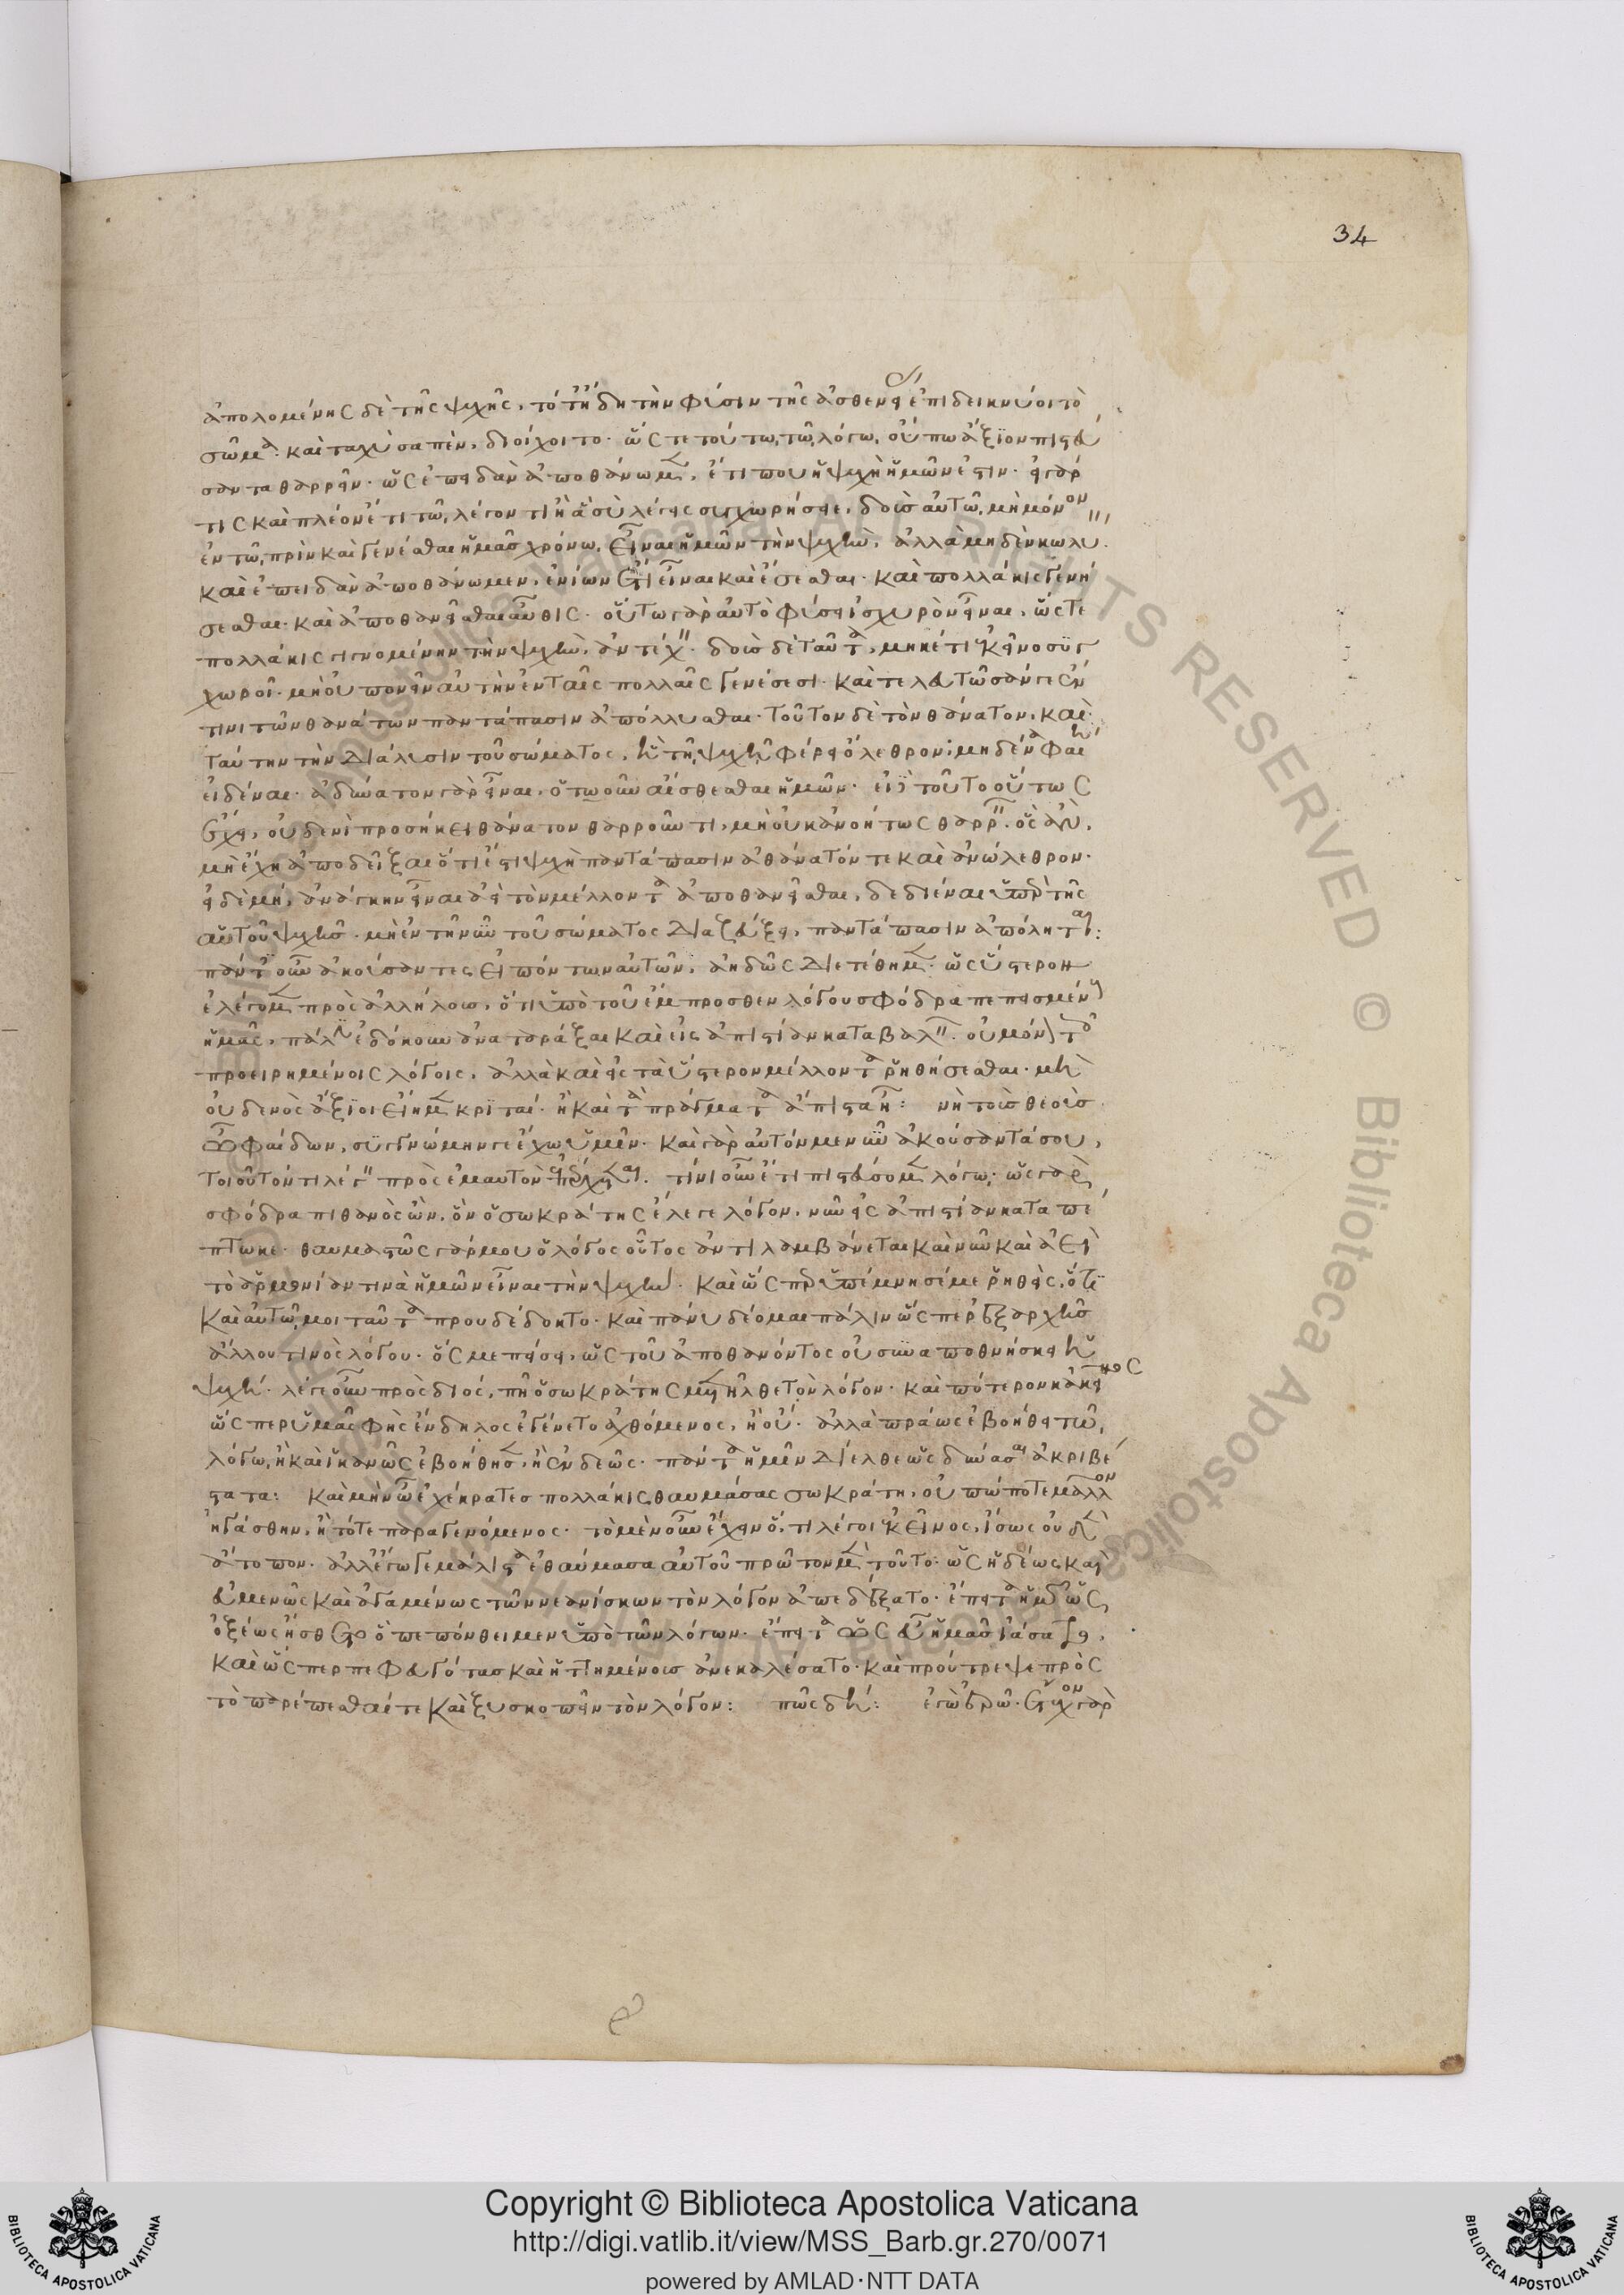 34
ἀπολομένης δὲ τῆς ψυχῆς, τότ' ἤδη τὴν φύσιν τῆς ἀσθενείας ἐπιδεικνύοι τὸ
σῶμα· καὶ ταχὺ σαπὲν, διοίχοιτο· ὥστε τούτω τῶ λόγω, οὔπω ἄξιον πιστεύ
σαντα θαρρεῖν· ὡς ἐπειδὰν ἀποθάνωμεν, ἔτι που ἡ ψυχὴ ἡμῶν ἐστιν· εἰ γάρ
τις καὶ πλέον ἔτι τῶ λέγοντι ἢ ἃ σὺ λέγεις συγχωρήσειε, δοὺς αὐτῶ, μὴ μόνον
ἐν τῶ πρὶν καὶ γενέσθαι ἡμᾶς χρόνω, εἶναι ἡμῶν τὴν ψυχὴν, ἀλλὰ μηδὲν κωλύ
καὶ ἐπειδὰν ἀποθάνωμεν, ἐνίων ἔτι εἶναι καὶ ἔσεσθαι· καὶ πολλάκις γενή
σεσθαι· καὶ ἀποθανεῖσθαι αὖθις· οὕτω γὰρ αὐτὸ φύσει ἰσχυρὸν εἶναι, ὥστε
πολλάκις γιγνομένην τὴν ψυχὴν, ἀντέχειν· δοὺς δὲ ταῦτα, μηκέτι ἐκεῖνο συγ
χωροῖ· μὴ οὐ πονεῖν αὐτὴν ἐν ταῖς πολλαῖς γενέσεσι· καὶ τελευτῶσάν γε ἐν
τινι τῶν θανάτων παντάπασιν ἀπόλλυσθαι· τοῦτον δὲ τὸν θάνατον, καὶ
ταύτην τὴν διάλυσιν τοῦ σώματος, ἣ τῆ ψυχῆ φέρει ὄλεθρον· μηδένα φαίη
εἰδέναι· ἀδύνατον γὰρ εἶναι, ὁτωοῦν αἴσθεσθαι ἡμῶν· εἰ τοῦτο οὕτως
ἔχει, οὐδενὶ προσήκει θάνατον θαρροῦντι, μὴ οὐκ ἀνοήτως θαρρεῖν. ὃς ἂν,
μὴ ἔχη ἀποδεῖξαι ὅτι ἔστι ψυχὴ παντάπασιν ἀθάνατόν τε καὶ ἀνώλεθρον·
εἰ δὲ μή, ἀνάγκην εἶναι ἀεὶ τὸν μέλλοντα ἀποθανεῖσθαι, δεδιέναι ὑπὲρ τῆς
αὑτοῦ ψυχῆς· μὴ ἐν τῆ νῦν τοῦ σώματος διαζεύξει, παντάπασιν ἀπόληται:
πάντες οὖν ἀκούσαντες εἰπόντων αὐτῶν, ἀηδῶς διετέθημεν· ὡς ὕστερον
ἐλέγομεν πρὸς ἀλλήλους, ὅτι ὑπὸ τοῦ ἔμπροσθεν λόγου σφόδρα πεπεισμένους
ἡμᾶς, πάλιν ἐδόκουν ἀναταράξαι καὶ εἰς ἀπιστίαν καταβαλεῖν· οὐ μόνον τοῖς
προειρημένοις λόγοις, ἀλλὰ καὶ εἰς τὰ ὕστερον μέλλοντα ῥηθήσεσθαι· μὴ
οὐδενὸς ἄξιοι εἴημεν κριταί· ἢ καὶ τὰ πράγματα ἄπιστα ἦ: νὴ τοὺς θεοὺς
ὦ Φαίδων, συγγνώμην γε ἔχω ὑμῖν· καὶ γὰρ αὐτόν με νῦν ἀκούσαντά σου,
τοιοῦτόν τι λέγειν πρὸς ἐμαυτὸν ἐπέρχεται· τίνι οὖν ἔτι πιστεύσομεν λόγω; ὡς γὰρ
σφόδρα πιθανὸς ὢν, ὃν ὁ σωκράτης ἔλεγε λόγον, νῦν εἰς ἀπιστίαν καταπέ
πτωκε· θαυμαστῶς γάρ μου ὁ λόγος οὗτος ἀντιλαμβάνεται καὶ νῦν καὶ ἀεὶ
τὸ ἁρμονίαν τινὰ ἡμῶν εἶναι τὴν ψυχήν· καὶ ὥσπερ ὑπέμνησέ με ῥηθεὶς, ὅτι
καὶ αὐτῶ μοι ταῦτα προυδέδοκτο· καὶ πάνυ δέομαι πάλιν ὥσπερ ἐξ ἀρχῆς
ἄλλου τινὸς λόγου· ὅς με πείσει, ὡς τοῦ ἀποθανόντος οὐ συναποθνήσκει ἡ
ψυχή· λέγε οὖν πρὸς διός, πῆ ὁ σωκράτης μετῆλθε τὸν λόγον· καὶ πότερον κἀκεῖνος
ὥσπερ ὑμᾶς φὴς ἔνδηλος ἐγένετο ἀχθόμενος, ἢ οὔ· ἀλλὰ πράως ἐβοήθει τῶ
λόγω, ἢ καὶ ἱκανῶς ἐβοήθησεν, ἢ ἐνδεῶς· πάντα ἡμῖν δίελθε ὡς δύνασαι ἀκριβέ
στατα: καὶ μὴν ὦ ἐχέκρατες πολλάκις θαυμάσας σωκράτη, οὐ πώποτε μᾶλλον
ἠγάσθην, ἢ τότε παραγενόμενος· τὸ μὲν οὖν ἔχειν ὅ,τι λέγοι ἐκεῖνος, ἴσως οὐδὲν
ἄτοπον· ἀλλ' ἔγωγε μάλιστα ἐθαύμασα αὐτοῦ πρῶτον μὲν τοῦτο· ὡς ἡδέως καὶ
εὐμενῶς καὶ ἀγαμένως τῶν νεανίσκων τὸν λόγον ἀπεδέξατο· ἔπειτα ἡμῶν ὡς
ὀξέως ἤσθετο ὃ πεπόνθειμεν ὑπὸ τῶν λόγων· ἔπειτα ὡς εὖ ἡμᾶς ἰάσατο,
καὶ ὥσπερ πεφευγότας καὶ ἡττημένους ἀνεκαλέσατο· καὶ προύτρεψε πρὸς
τὸ παρέπεσθαί τε καὶ ξυσκοπεῖν τὸν λόγον: πῶς δή: ἐγὼ ἐρῶ· ἔτυχον γὰρ
Copyright © Biblioteca Apostolica Vaticana
http://digi.vatlib.it/view/MSS_Barb.gr.270/0071
powered by AMLAD·NTT DATA
BIBLIOTECA APOSTOLICA VATICANA
BIBLIOTECA APOSTOLICA VATICANA